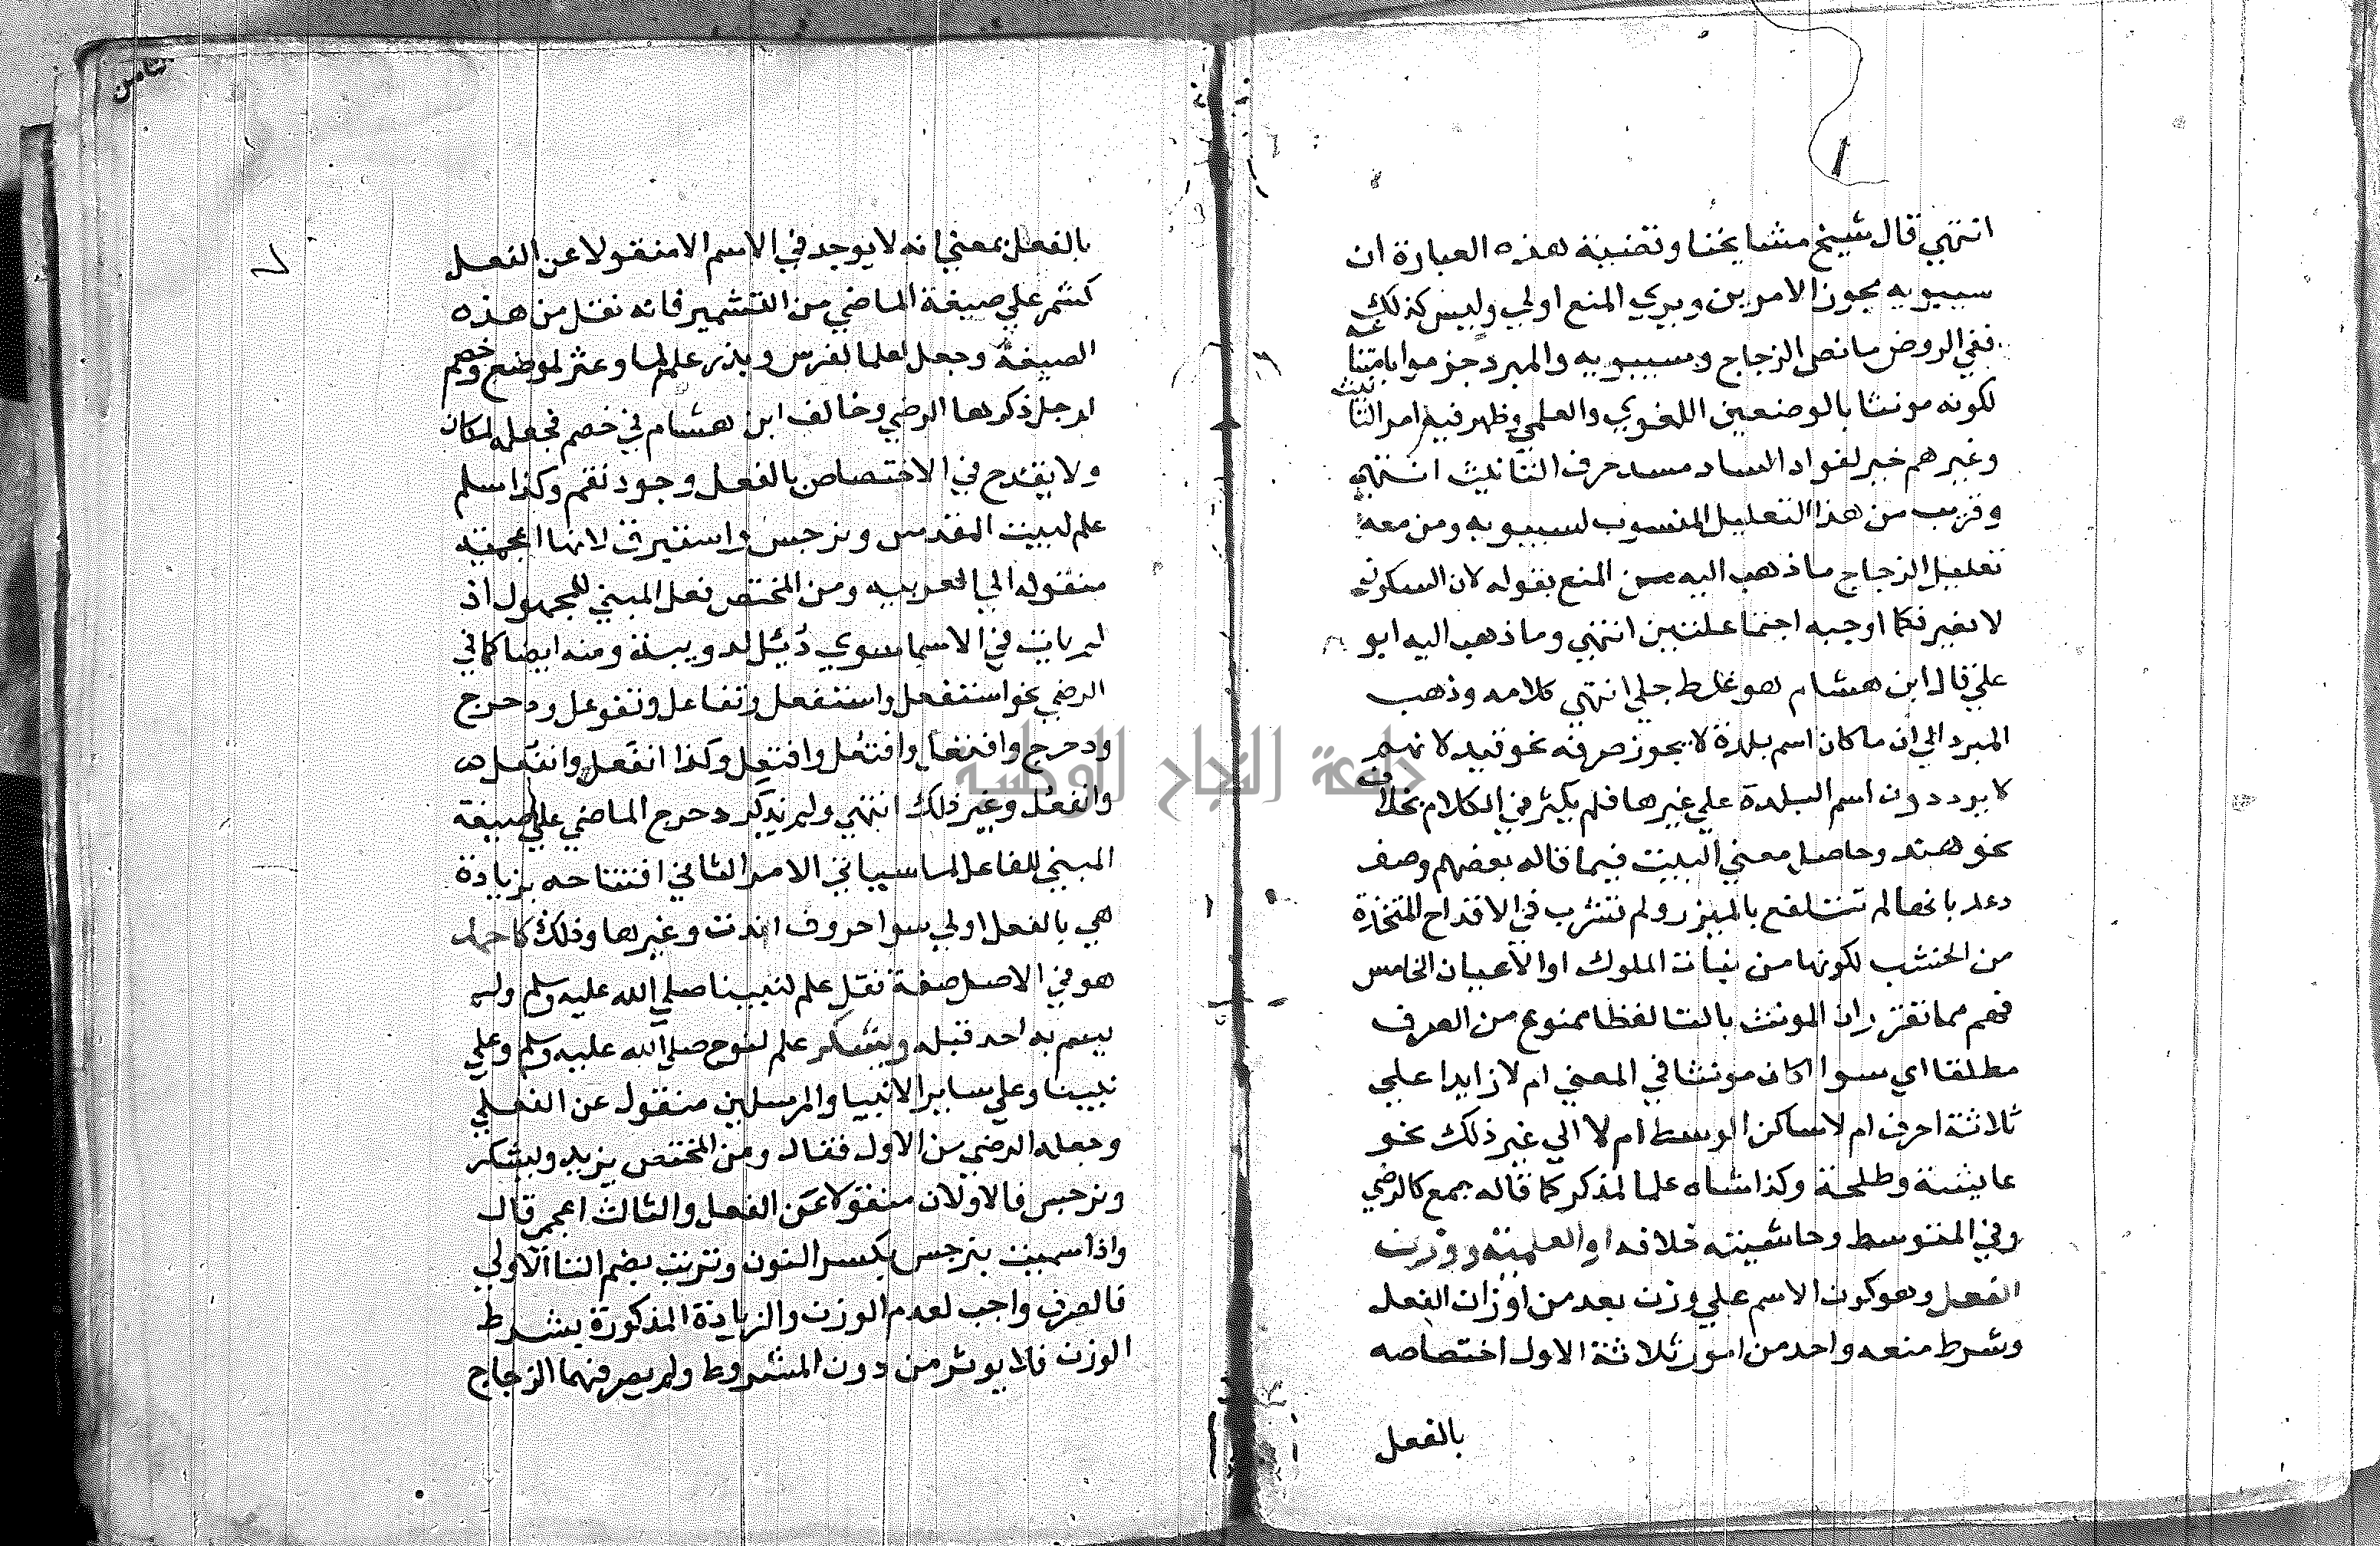 انتهي قال شيخ مشايخنا وقضية هذه العبارة ان
سيبويه يجوز الامرين ويري المنع اولي وليس كذلك
ففي الروض ما نصل الزجاج وسيبويه والمبرد جزموا بامتناعه
لكونه مونثا بالوضعين اللغوي والعلمي وظهر فيه امر التانيث
وغيرهم خير لفواد الساد مسد حرف التانيث انتهي
وقريب من هذا التعليل المنسوب لسيبويه ومن معه
تعليل الزجاج ما ذهب اليه من المنع بقوله لان السكون
لا يغير فكما اوجبه اجتماع علتين انتهي وما ذهب اليه ابو
علي قال ابن هشام هو غلط جلي انتهي كلامه وذهب
المبرد الي ان ما كان اسم بلدة لا يجوز صرفه نحو فيد لانهم
لا يرددون اسم البلدة علي غيرها فلم يكثر في الكلام بخلاف
نحو هند وحاصل معني البيت فيما قاله بعضهم وصف
دعد بانها لم تتلفع بالميزر ولم تشرب في الاقداح المتخذة
من الخشب لكونها من بنات الملوك او الاعيان الخامس
فهم مما تقرر ان المونث بالتا لفظا ممنوع من الصرف
مطلقا اي سوا اكان مونثا في المعني ام لا زايدا علي
ثلاثة احرف ام لا ساكن الوسط ام لا الي غير ذلك نحو
عايشة وطلحة وكذا شاه علما لمذكر كما قاله جمع كالرضي
وفي المتوسط وحاشيته خلافه او العلمية ووزن
الفعل وهو كون الاسم علي وزن يعد من اوزان الفعل
وشرط منعه واحد من امور ثلاثة الاول اختصاصه
بالفعل
الثامن
بالفعل بمعني انه لا يوجد في الاسم الا منقولا عن الفعل
كشمر علي صيغة الماضي من التشمير فانه نقل من هذه
الصيغة وجعل علما لفرس وبذر علم لما وعثر لموضع وخصم
لرجل ذكرها الرضي وخالف ابن هشام في خصم فجعله لمكان
ولا يقدح في الاختصاص بالفعل وجود نقم وكذا سلم
علم لبيت المقدس ونرجس واستبرق لانها اعجمية
منقوله الي العربيه ومن المختص فعل المبني للمجهول اذ
لم يات في الاسما سوي دُئِل لدويبة ومنه ايضا كما في
الرضي نحو استفعل واستفعل وتفاعل وتفوعل ودحرج
ودحرج وافتعل وافتعل وافتعل وكذا انفعل وانفعل
وانفعل وغير ذلك انتهي ولم يذكر دحرج الماضي علي صيغة
المبني للفاعل لما سياتي الامر الثاني افتتاحه بزيادة
هي بالفعل اولي سوا حروف اندت وغيرها وذلك كاحمد
هو في الاصل صفة نقل علم لنبينا صلي الله عليه وسلم ولم
يسم به احد قبله ويشكر علم لنوح صلي الله عليه وسلم وعلي
نبينا وعلي ساير الانبيا والمرسلين منقول عن الفعلي
وجعله الرضي من الاول فقال ومن المختص يزيد ويشكر
ونرجس فالاولان منقولا عن الفعل والثالث اعجمي قال
واذا سميت بنرجس بكسر النون وترتب بضم التا الاولي
فالصرف واجب لعدم الوزن والزيادة المذكورة بشرط
الوزن فلا يوثر من دون المشروط ولم يصرفهما الزجاج
جامعة النجاح الوطنية